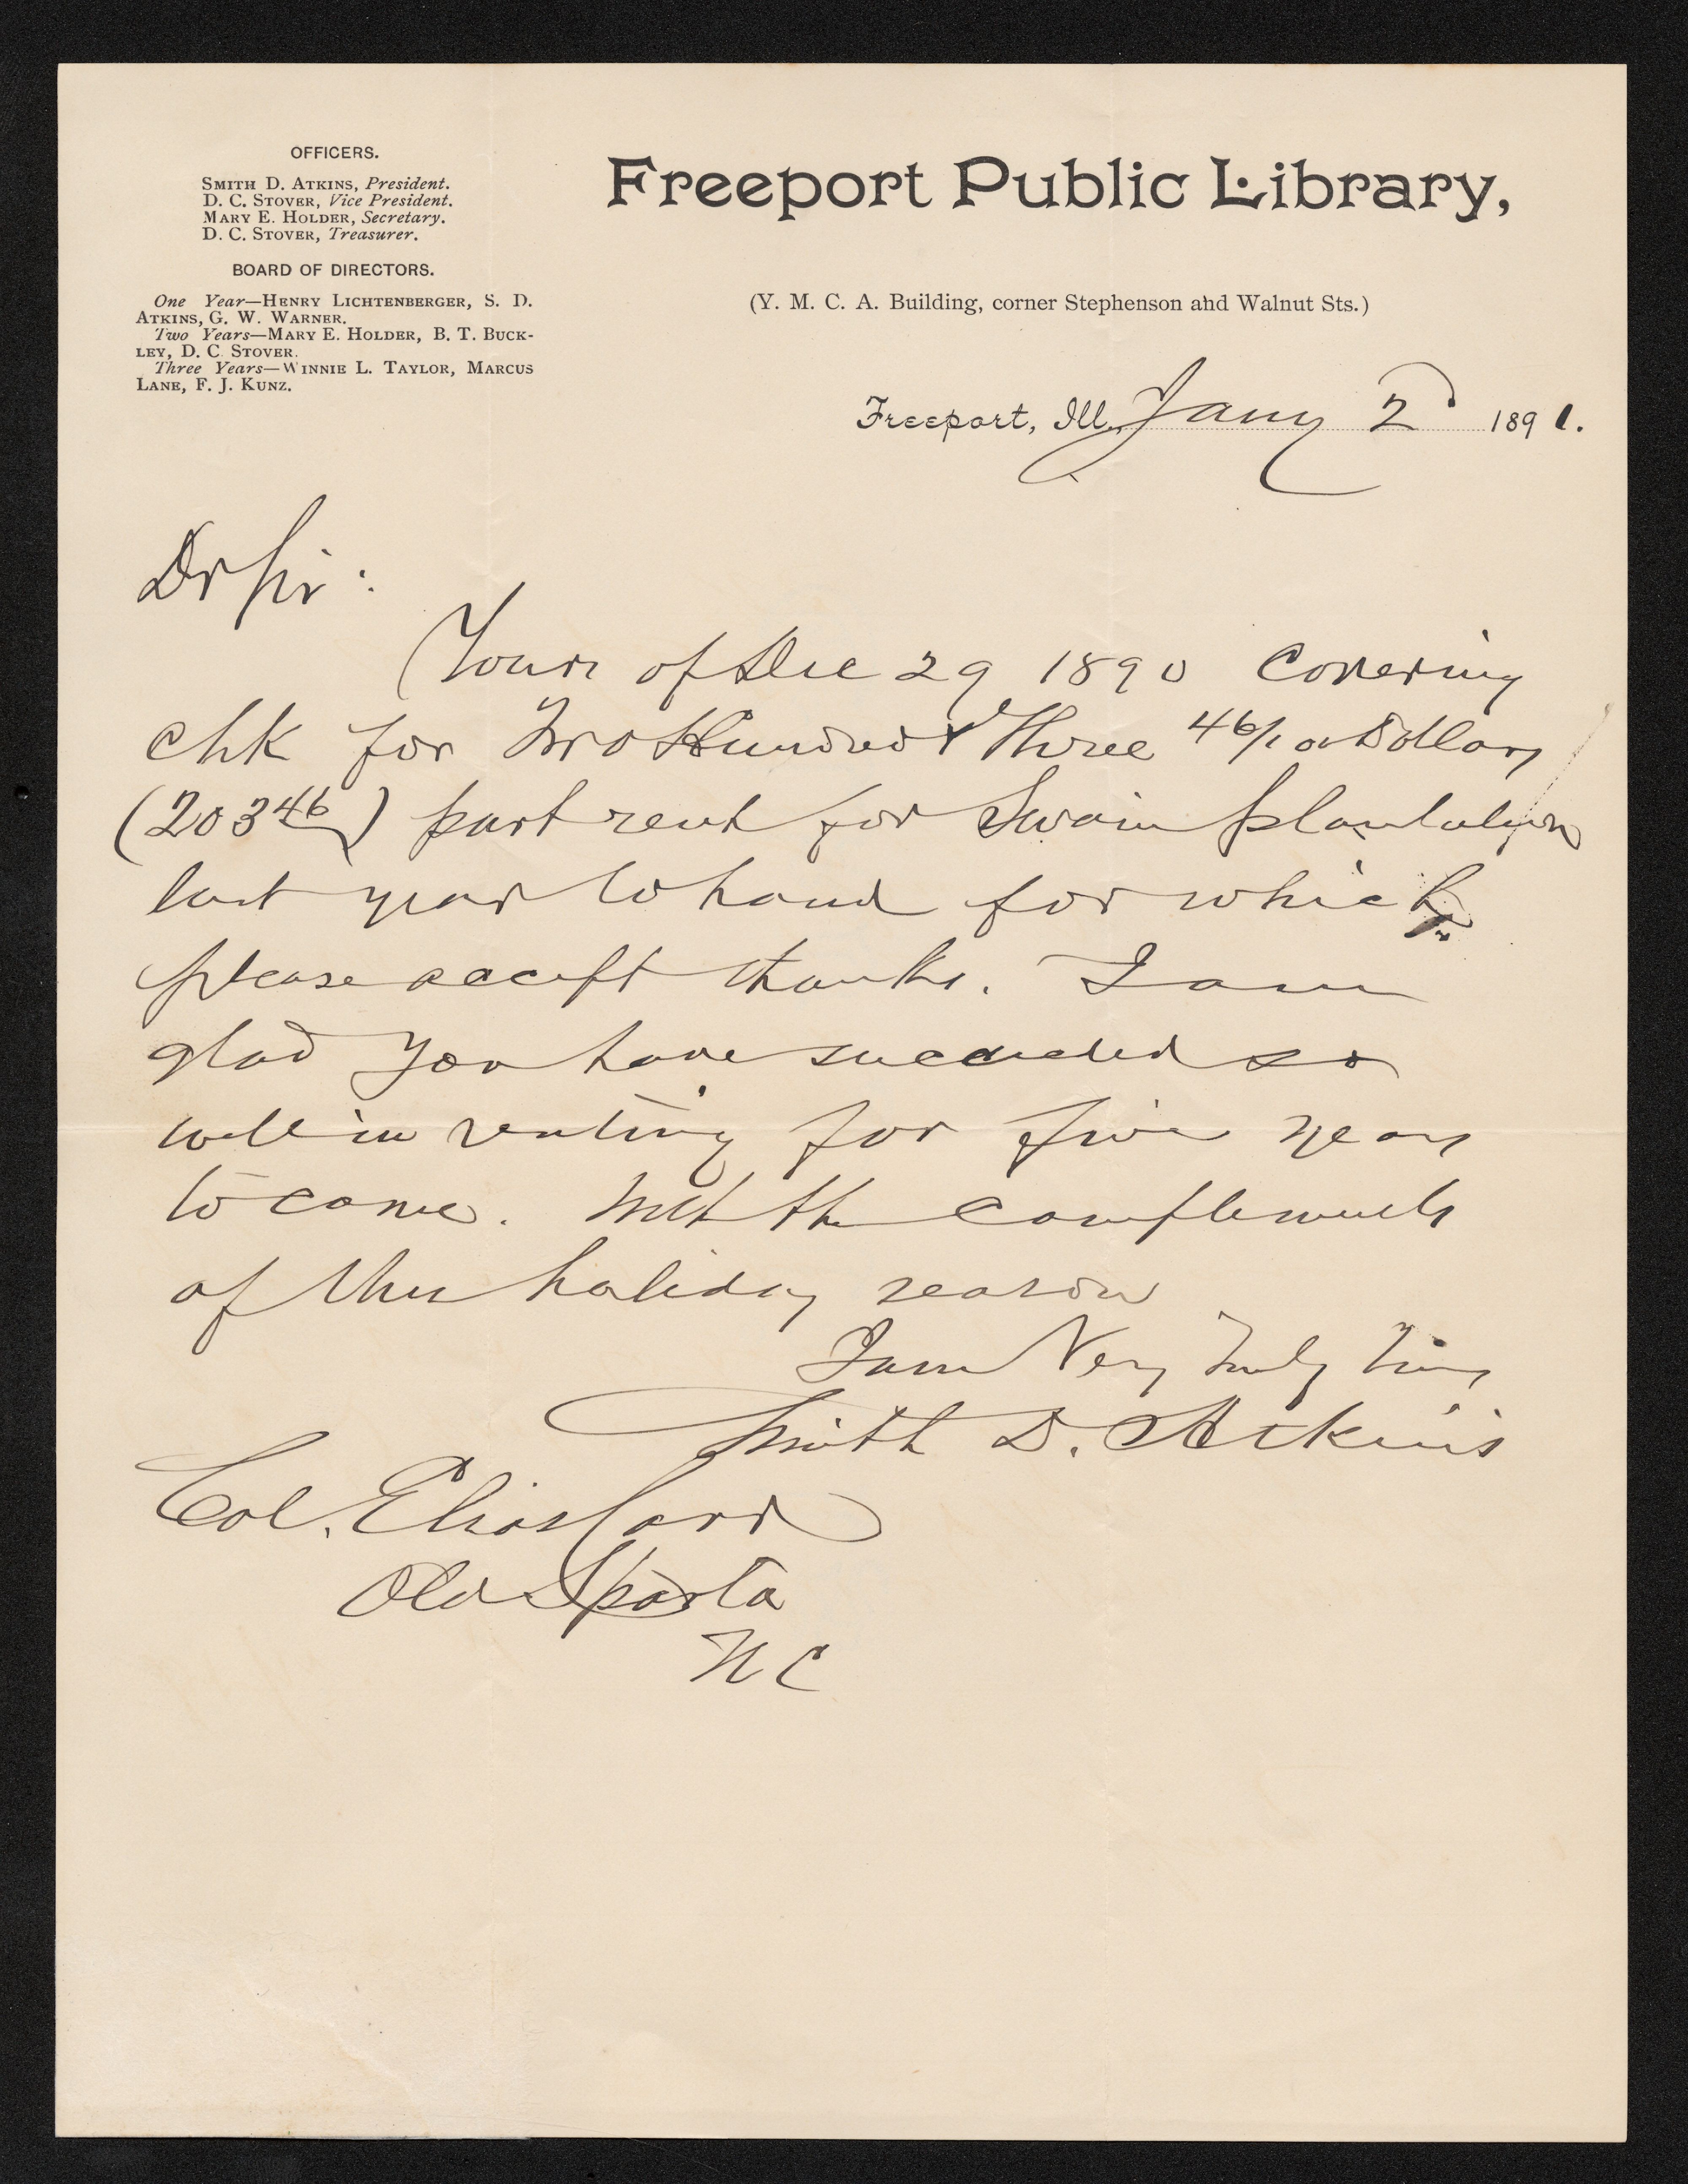 OFFICERS.
SMITH D. ATKINS, President.
D. C. STOVER, Vice President.
MARY E. HOLDER, Secretary.
D. C. STOVER, Treasurer.
BOARD OF DIRECTORS.
One Year—HENRY LICHTENBERGER, S. D.
ATKINS, G. W. WARNER.
Two Years—MARY E. HOLDER, B. T. BUCK-
LEY, D. C. STOVER.
Three Years—WINNIE L. TAYLOR, MARCUS
LANE, F. J. KUNZ.
Freeport Public Library,
(Y. M. C. A. Building, corner Stephenson and Walnut Sts.)
Freeport, Ill. Jany 2 1891.
Dr Sir:
Yours of Dec 29 1890 covering
chk for Two Hundred & Three 46/100 Dollars
(203 46) part rent for Swain plantation
last year to hand for which
please accept thanks. I am
glad you have succeeded so
well in renting for five years
to come. With the complements
of this holiday season
I am Very Truly Yours
Smith D. Atkins
Col. Elias Carr
Old Sparta
N C